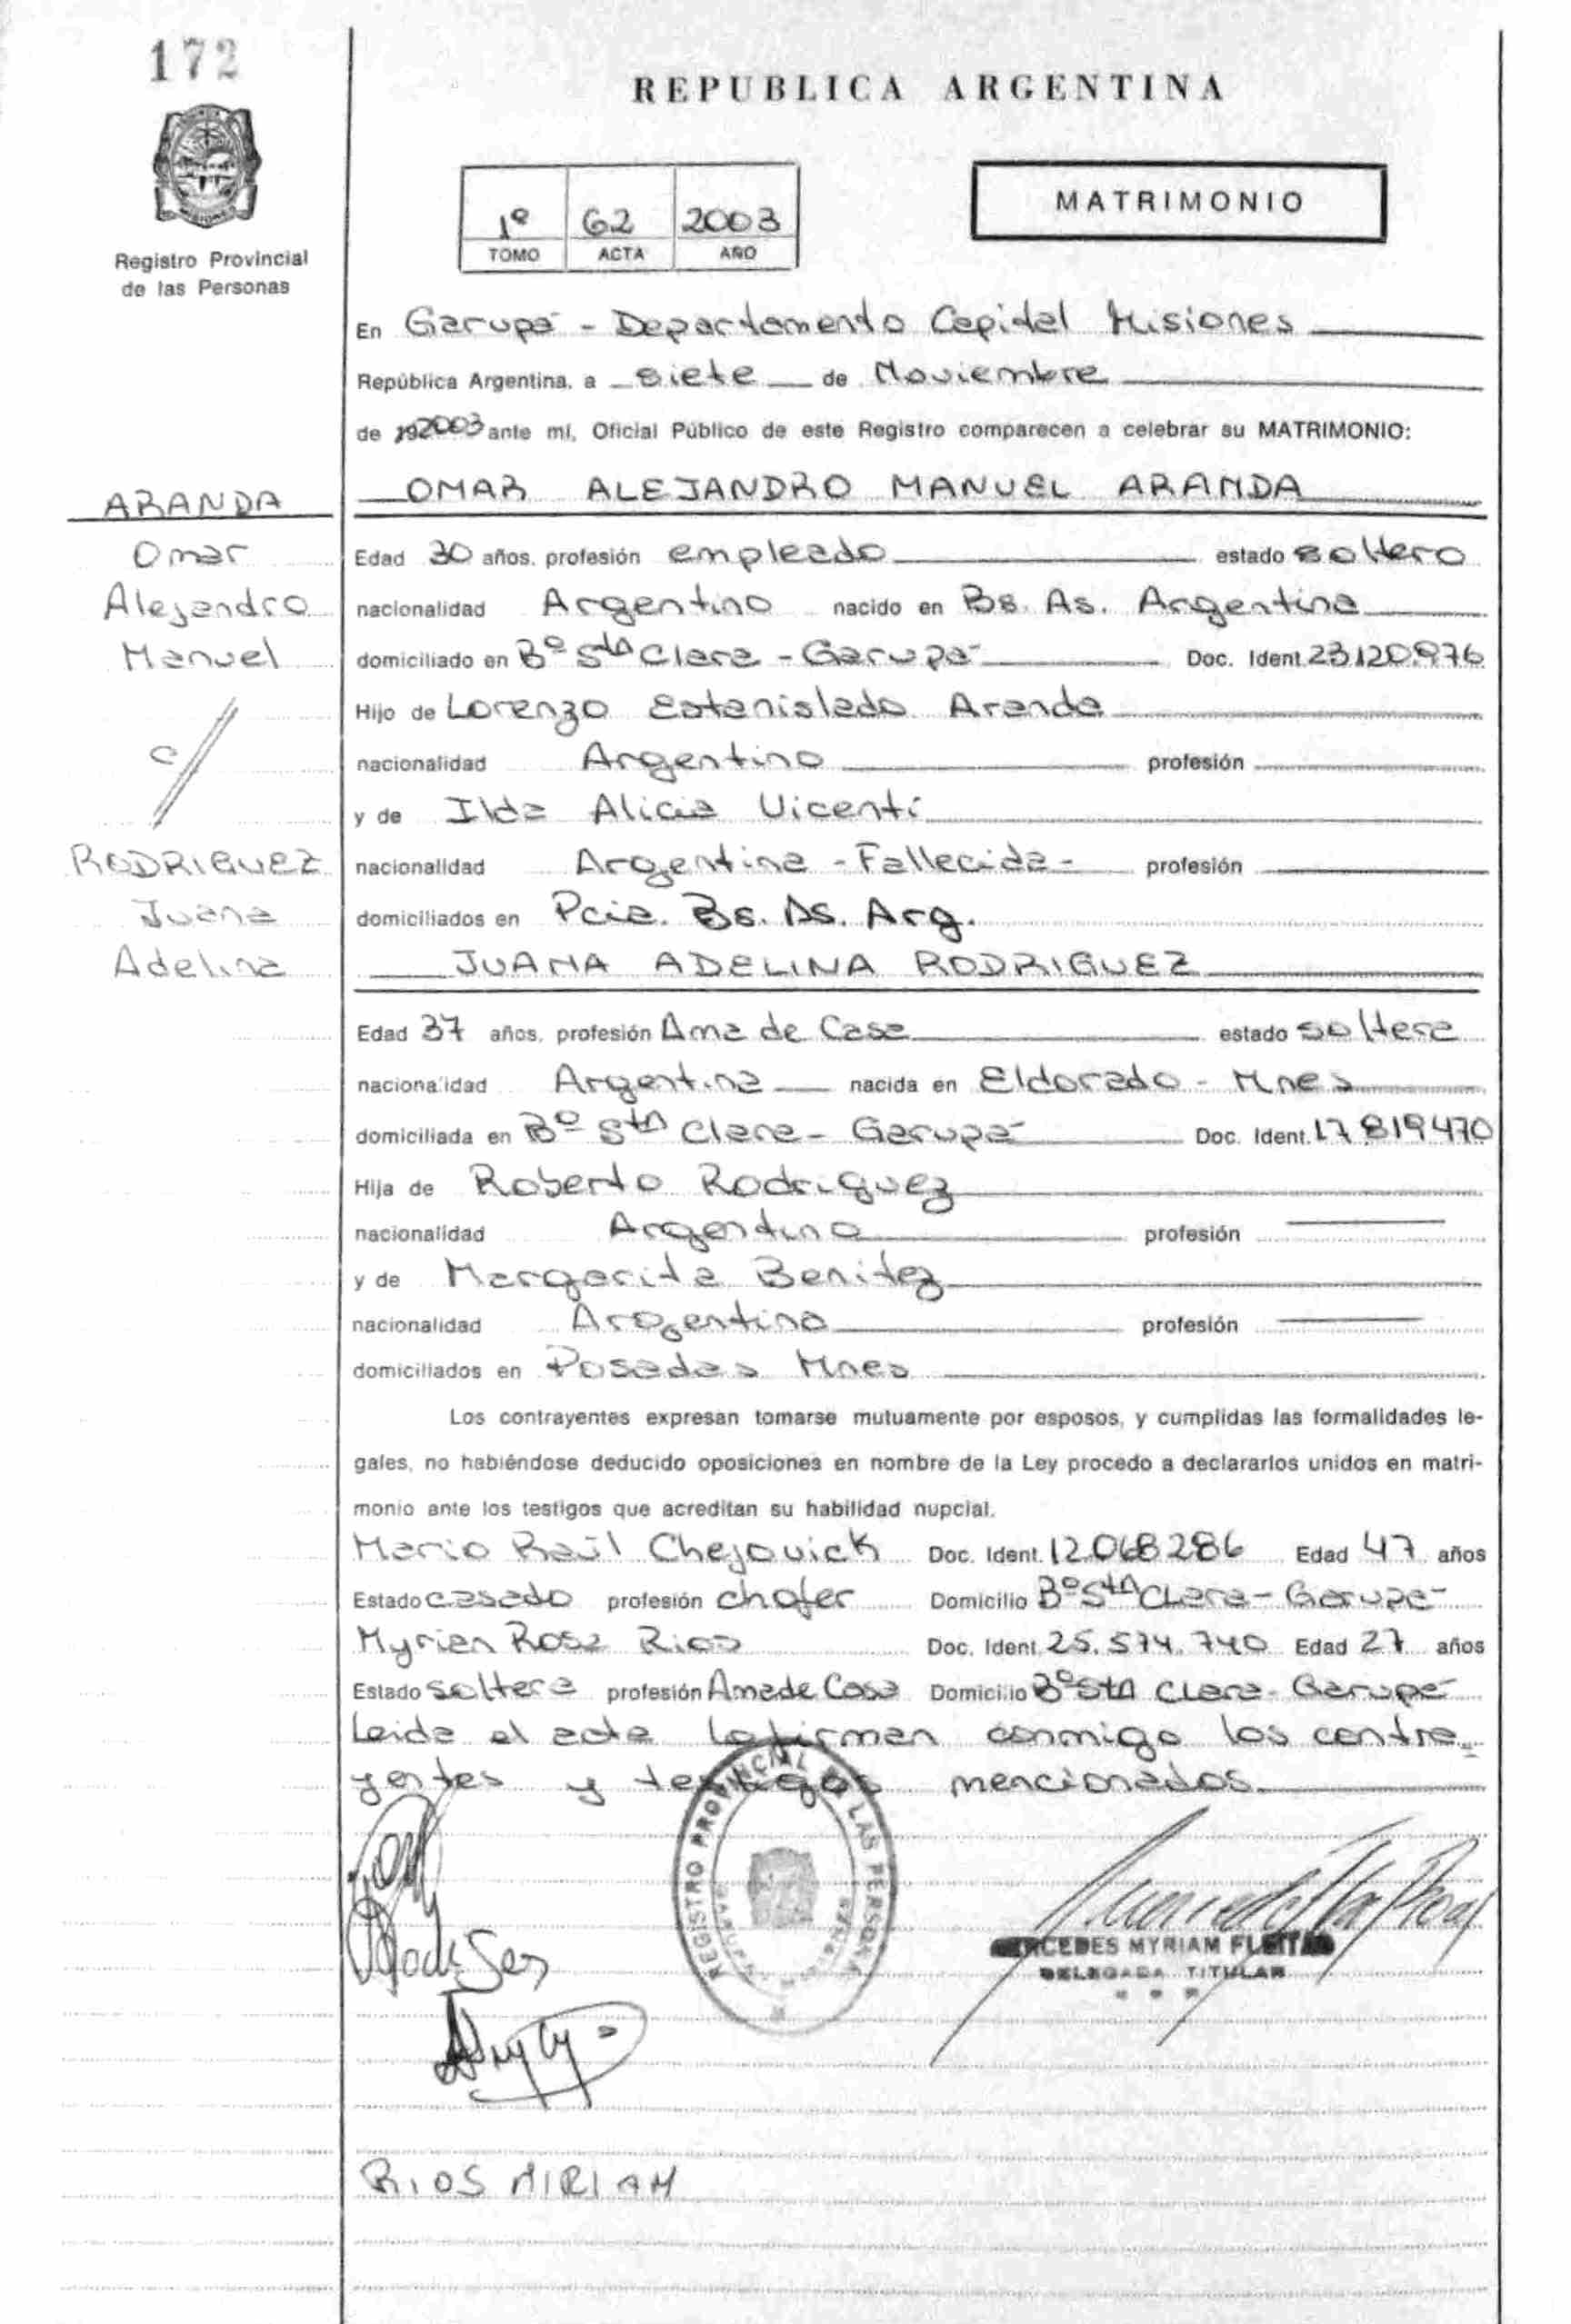 172
REPUBLICA ARGENTINA
MATRIMONIO
1º 62 2003
TOMO ACTA AÑO
MISIONES
Registro Provincial
de las Personas
En Garupá - Departamento Capital Misiones
República Argentina, a siete de Noviembre
de 192003 ante mí, Oficial Público de este Registro comparecen a celebrar su MATRIMONIO:
ARANDA
OMAR ALEJANDRO MANUEL ARANDA
Omar
Edad 30 años, profesión empleado estado soltero
Alejandro
nacionalidad Argentino nacido en Bs. As. Argentina
Manuel
domiciliado en Bº Sta Clara - Garupá Doc. Ident. 23.120.976
Hijo de Lorenzo Estanislado Aranda
c//
nacionalidad Argentino profesión
y de Ilda Alicia Vicenti
RODRIGUEZ
nacionalidad Argentina - Fallecida - profesión
Juana
domiciliados en Pcia. Bs. As. Arg.
Adelina
JUANA ADELINA RODRIGUEZ
Edad 37 años, profesión Ama de Casa estado soltera
nacionalidad Argentina nacida en Eldorado - Mnes
domiciliada en Bº Sta Clara - Garupá Doc. Ident. 17.819470
Hija de Roberto Rodriguez
nacionalidad Argentino profesión
y de Margarita Benitez
nacionalidad Argentina profesión
domiciliados en Posadas Mnes
Los contrayentes expresan tomarse mutuamente por esposos, y cumplidas las formalidades le-
gales, no habiéndose deducido oposiciones en nombre de la Ley procedo a declararlos unidos en matri-
monio ante los testigos que acreditan su habilidad nupcial.
Mario Raúl Chejovick Doc. Ident. 12.068286 Edad 47 años
Estado casado profesión chofer Domicilio Bº Sta CLara - Garupá
Myrian Rosa Rios Doc. Ident. 25.574.740 Edad 27 años
Estado soltera profesión Ama de Casa Domicilio Bº Sta CLara - Garupá
Leida el acta la firman conmigo los contra-
yentes y testigos mencionados
REGISTRO PROVINCIAL DE LAS PERSONAS
MERCEDES MYRIAM FLEITAS
DELEGADA TITULAR
RIOS MIRIAM